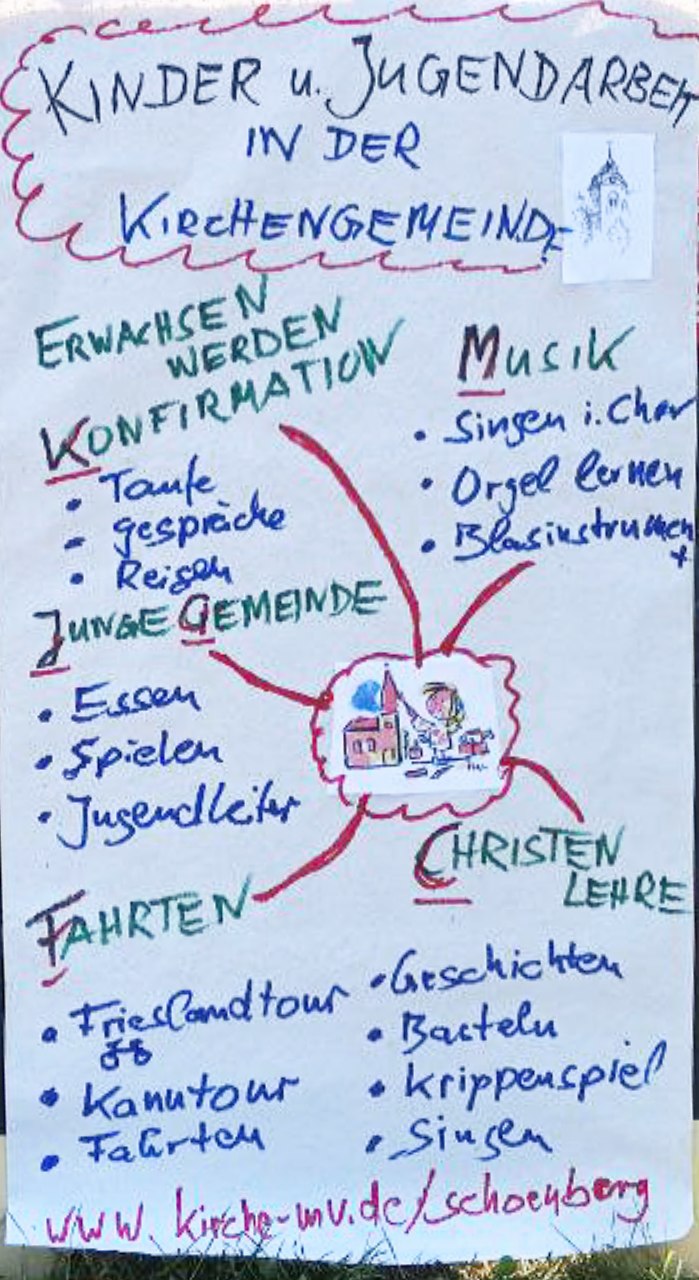 KINDER u. JUGENDARBEIT
IN DER
KIRCHENGEMEINDE
ERWACHSEN
WERDEN
KONFIRMATION
• Taufe
- gespräche
• Reisen
MUSIK
• Singen i. Chor
• Orgel lernen
• Blasinstrumen
t
JUNGE GEMEINDE
• Essen
• Spielen
• Jugendleiter
CHRISTEN
LEHRE
• Geschichten
• Basteln
• Krippenspiel
• Singen
FAHRTEN
• Frieslandtour
• Kanutour
• Fahrten
www.kirche-mv.de/schoenberg